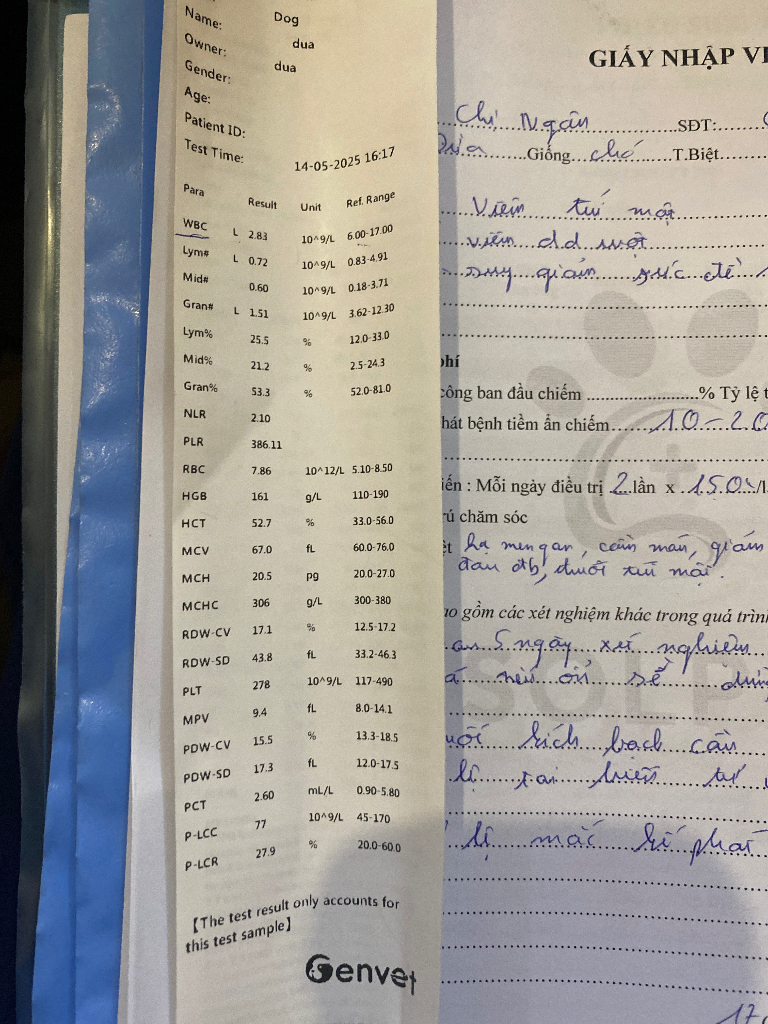 Name: Dog
Owner: dua
Gender: dua
Age:
Patient ID:
Test Time: 14-05-2025 16:17
Para Result Unit Ref. Range
WBC L 2.83 10^9/L 6.00-17.00
Lym# L 0.72 10^9/L 0.83-4.91
Mid# 0.60 10^9/L 0.18-3.71
Gran# L 1.51 10^9/L 3.62-12.30
Lym% 25.5 % 12.0-33.0
Mid% 21.2 % 2.5-24.3
Gran% 53.3 % 52.0-81.0
NLR 2.10
PLR 386.11
RBC 7.86 10^12/L 5.10-8.50
HGB 161 g/L 110-190
HCT 52.7 % 33.0-56.0
MCV 67.0 fL 60.0-76.0
MCH 20.5 pg 20.0-27.0
MCHC 306 g/L 300-380
RDW-CV 17.1 % 12.5-17.2
RDW-SD 43.8 fL 33.2-46.3
PLT 278 10^9/L 117-490
MPV 9.4 fL 8.0-14.1
PDW-CV 15.5 % 13.3-18.5
PDW-SD 17.3 fL 12.0-17.5
PCT 2.60 mL/L 0.90-5.80
P-LCC 77 10^9/L 45-170
P-LCR 27.9 % 20.0-60.0
【The test result only accounts for
this test sample】
Genvet
GIẤY NHẬP VI
Chị Ngân SĐT:
Dừa Giống chó T.Biệt
Viêm túi mật
viêm d.d ruột
suy giảm sức đề
phí
công ban đầu chiếm % Tỷ lệ t
hát bệnh tiềm ẩn chiếm 10-20
iến : Mỗi ngày điều trị 2 lần x 150 /l
rú chăm sóc
hạ men gan, giảm
đau túi mật.
ao gồm các xét nghiệm khác trong quá trình
5 ngày xét nghiệm
nếu ổn sẽ
kích bạch cầu
bị tai biến
bị mắc kế phát
17